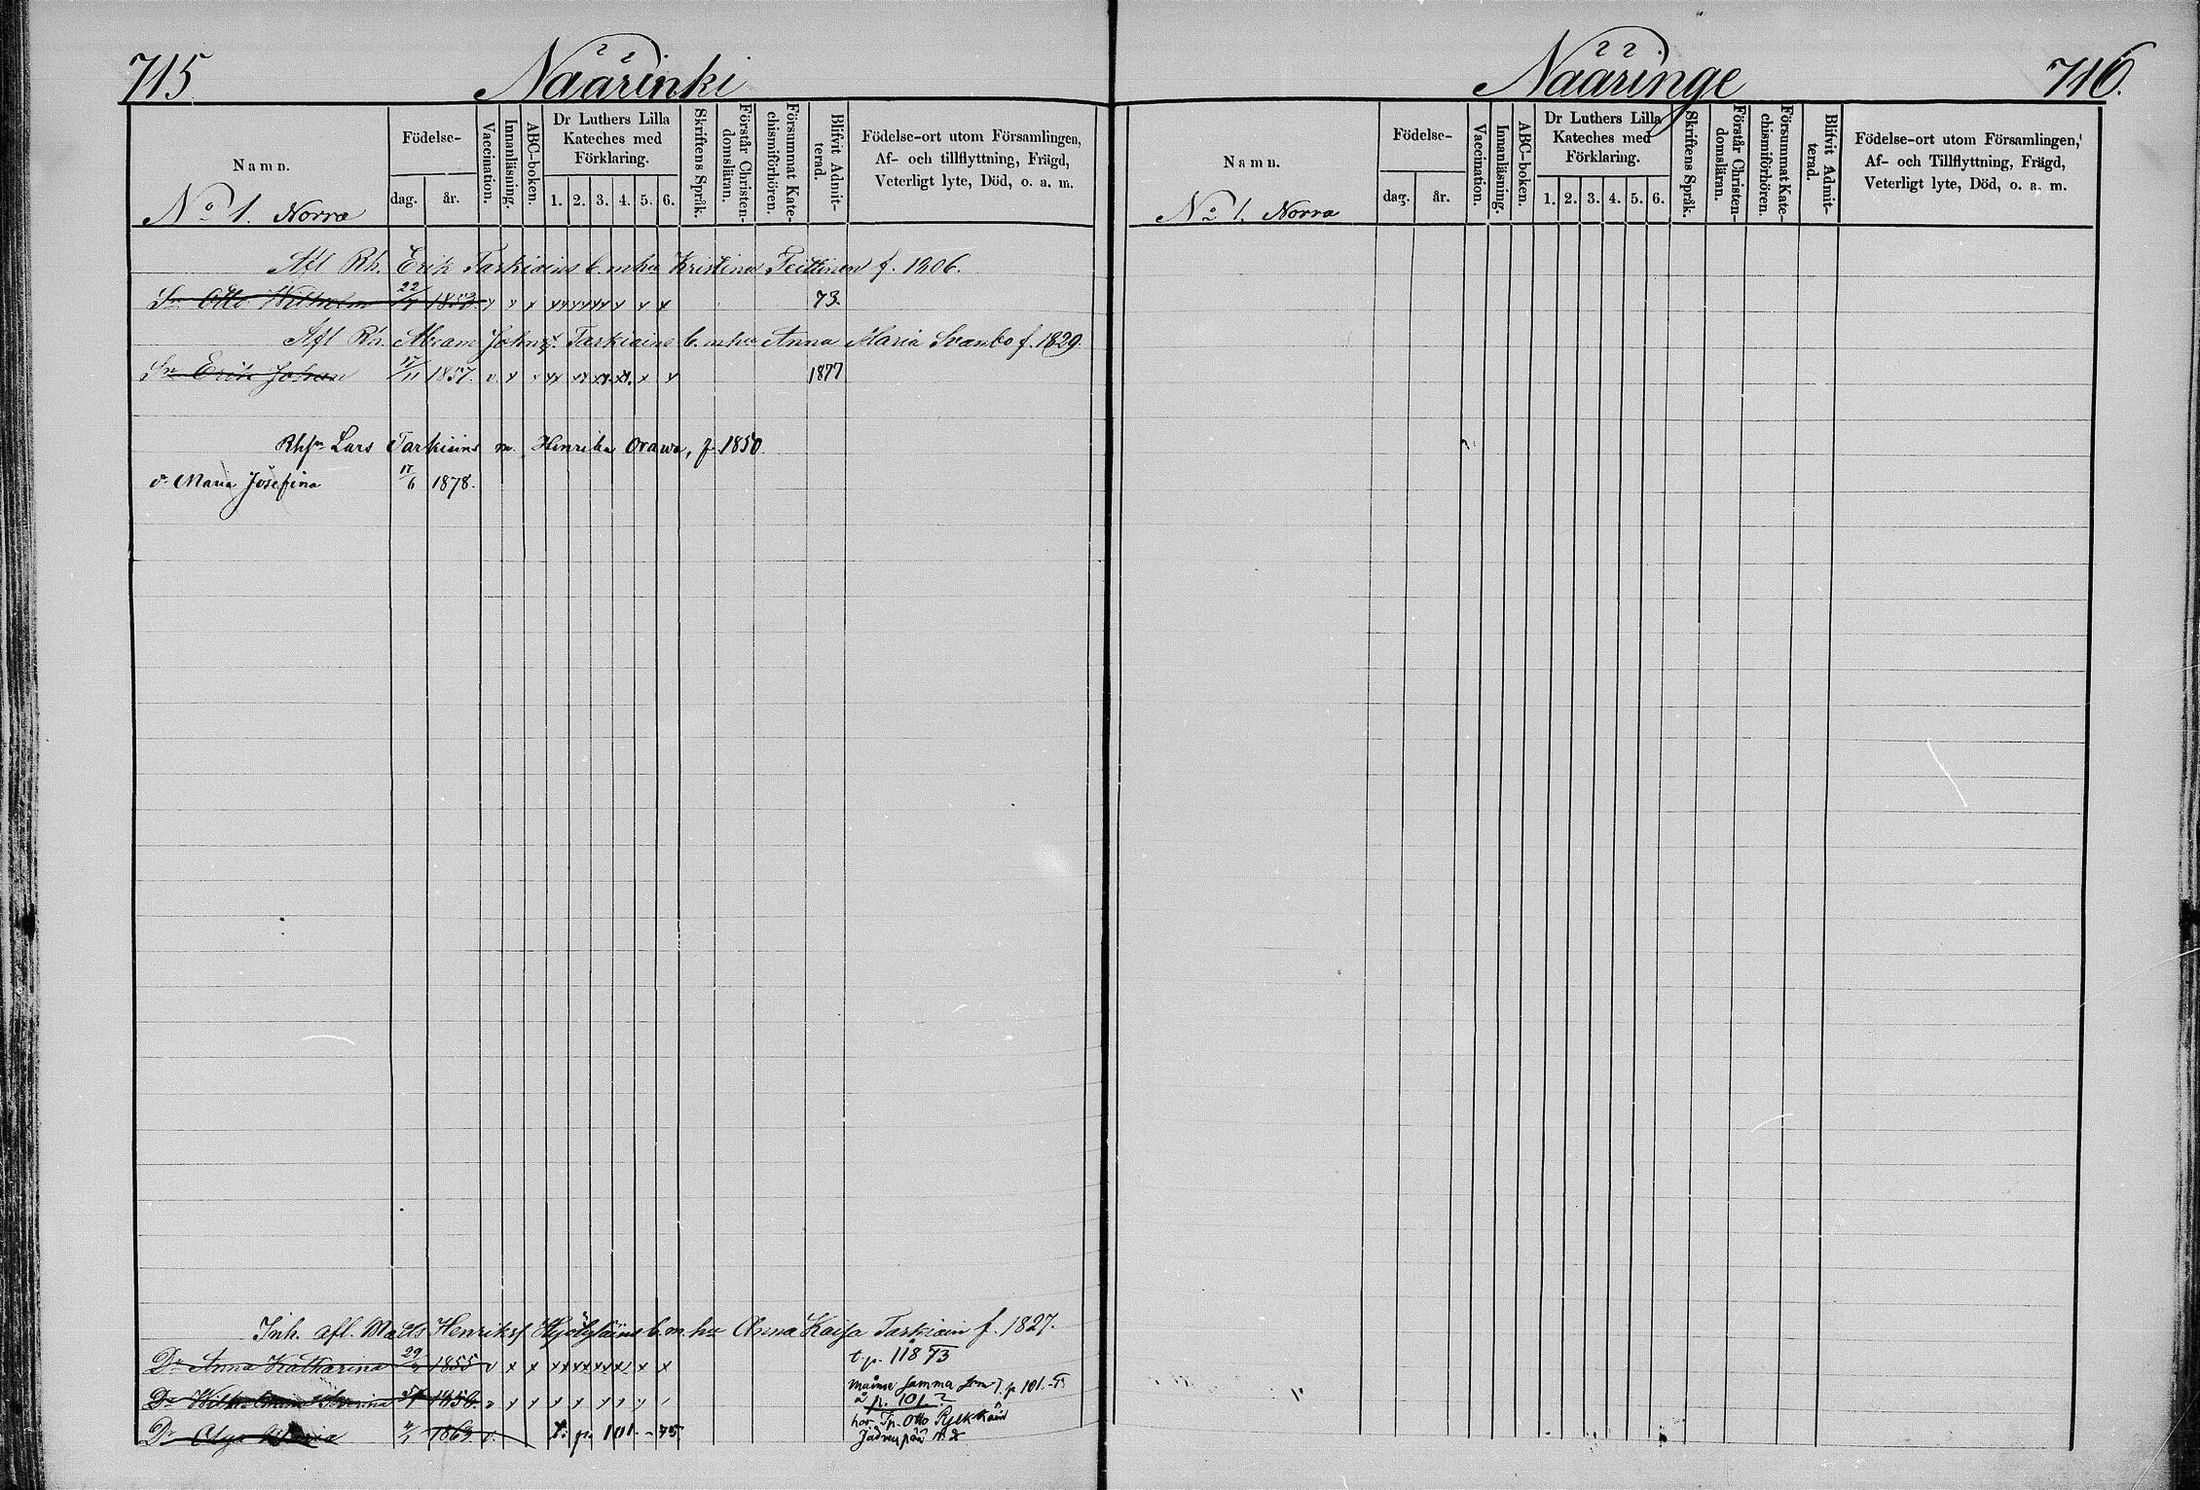 715 Näärinki
Namn.
Födelse-
dag. år.
Vaccination.
Innanläsning.
ABC-boken.
Dr Luthers Lilla
Kateches med
Förklaring.
1. 2. 3. 4. 5. 6.
Skriftens Språk.
Förstår Christen-
domsläran.
Försummat Kate-
chismiförhören.
Blifvit Admit-
terad.
Födelse-ort utom Församlingen,
Af- och tillflyttning, Frägd,
Veterligt lyte, Död, o. a. m.
No 1. Norra
Afl Rh. Erik Tarkiains b. m. hu Kristina Teittinen f. 1806.
Sn Otto Wilhelm 22/ 1853. v x x xx xx xx x x x 73.
Afl Rh. Abram Johnsf. Tarkiains b. m. hu Anna Maria f. 1829.
Sn Erik Johan 17/11 1857. v x x x x 1877
Rhsn Lars Tarkiains m. Henrika Orawa, f. 1850.
dr Maria Josefina 17/6 1878.
Inh. afl. Mats Henriksf b. m. hu Anna Kaisa Tarkiain f. 1827.
Dr Anna Katharina 29/ 1855 v x x x x t. p. 118 73
Dr 1850. v p 101.
å p. 101?
Dr Maria 1863. v. t. p. 101 - 75
har Tp. Otto
716.
Nääringe
Namn.
Födelse-
dag. år.
Vaccination.
Innanläsning.
ABC-boken.
Dr Luthers Lilla
Kateches med
Förklaring.
1. 2. 3. 4. 5. 6.
Skriftens Språk.
Förstår Christen-
domsläran.
Försummat Kate-
chismiförhören.
Blifvit Admit-
terad.
Födelse-ort utom Församlingen,
Af- och Tillflyttning, Frägd,
Veterligt lyte, Död, o. a. m.
No 1. Norra